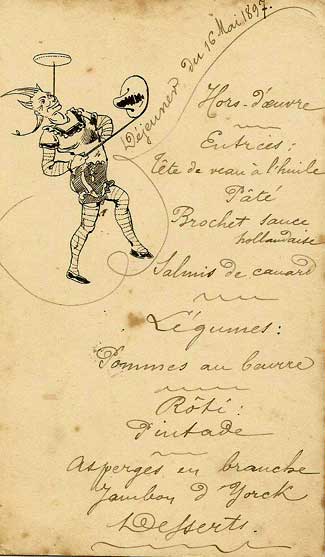 Déjeuner du 16 Mai 1897.
Hors-d'œuvre
Entrées:
Tête de veau à l'huile
Pâté
Brochet sauce
hollandaise
Salmis de canard
Légumes:
Pommes au beurre
Rôti:
Pintade
Asperges en branche
Jambon d'Yorck
Desserts.